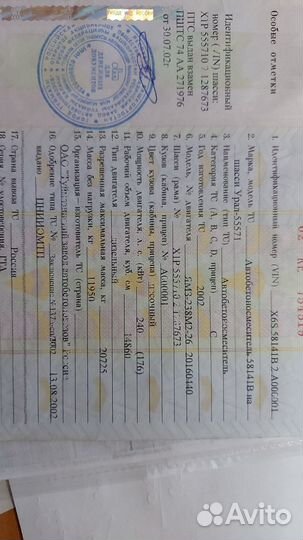 Особые отметки
Идентификационный
номер (VIN) шасси:
X1P 555710 2 1287673
ПТС выдан взамен
ПШТС 74 АА 271976
от 30.07.02г
1. Идентификационный номер (VIN) X6S 58141B 2 A000001
2. Марка, модель ТС Автобетоносмеситель 58141В на
шасси Урал-55571
3. Наименование (тип ТС) Автобетоносмеситель
4. Категория ТС (А, В, С, D, прицеп) С
5. Год изготовления ТС 2002
6. Модель, № двигателя ЯМЗ-238М2-26 20160440
7. Шасси (рама) № X1P 555710 2 1287673
8. Кузов (кабина, прицеп) № A000001
9. Цвет кузова (кабины, прицепа) песочный
10. Мощность двигателя, л. с. (кВт) 240 (176)
11. Рабочий объем двигателя, куб. см 14860
12. Тип двигателя дизельный
13. Разрешенная максимальная масса, кг 20725
14. Масса без нагрузки, кг 11950
15. Организация – изготовитель ТС (страна)
ОАО завод автобетоновозов
16. Одобрение типа ТС № 13.08.2002
выдано ЦНИИЭМТП
17. Страна вывоза ТС Россия
18. Серия, № ГТД
Avito